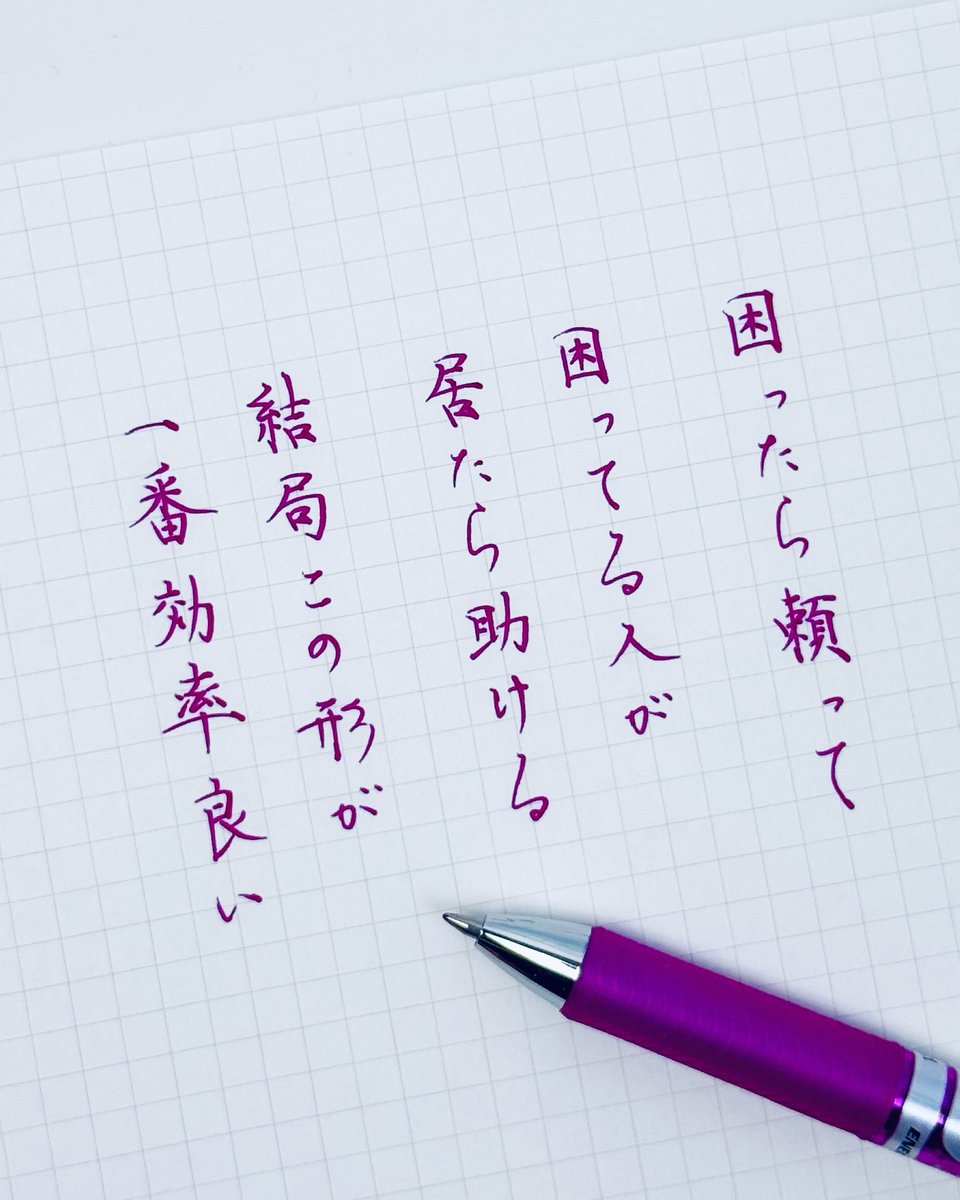 困ったら頼って
困ってる人が
居たら助ける
結局この形が
一番効率良い